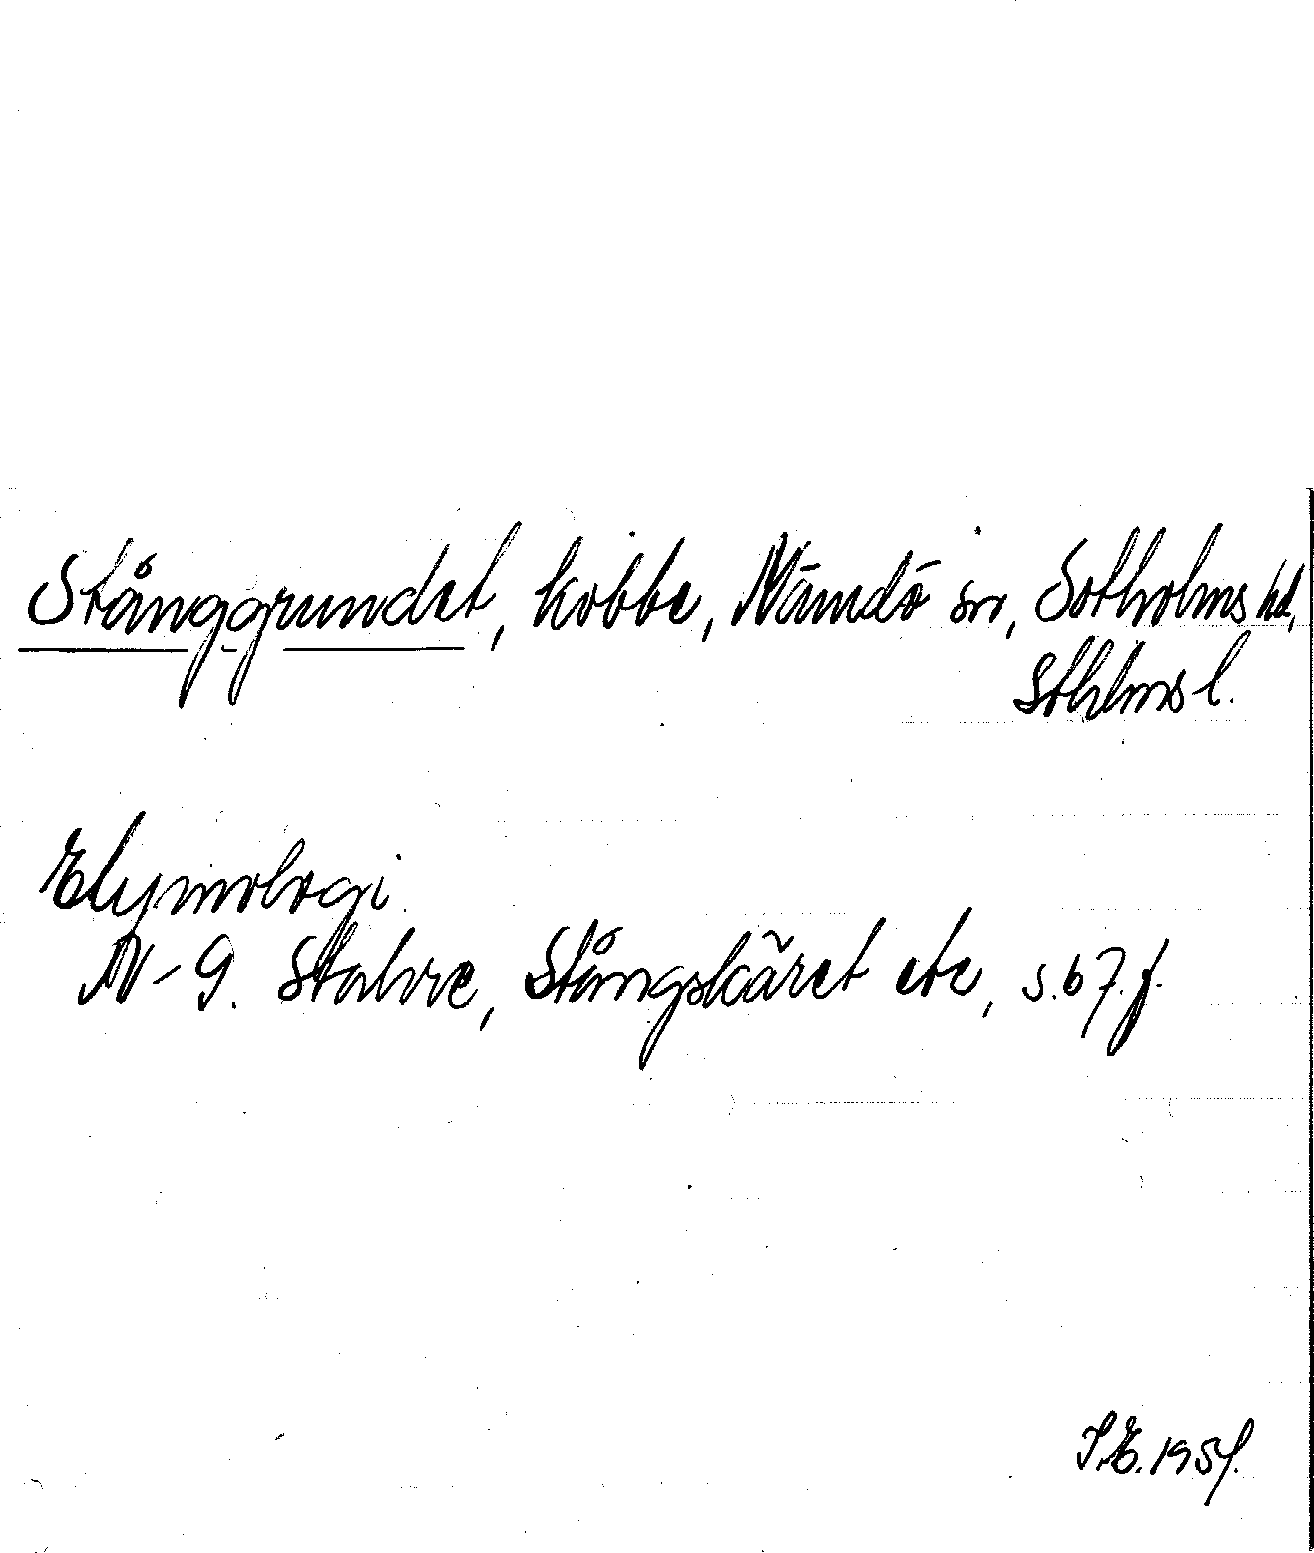 Stånggrundet, kobbe, Nämdö sn, Sotholms hd,
Sthlms l.
Etymologi
N-G. Stahre, Stångskäret etc, s. 67. f.
S.E. 1957.